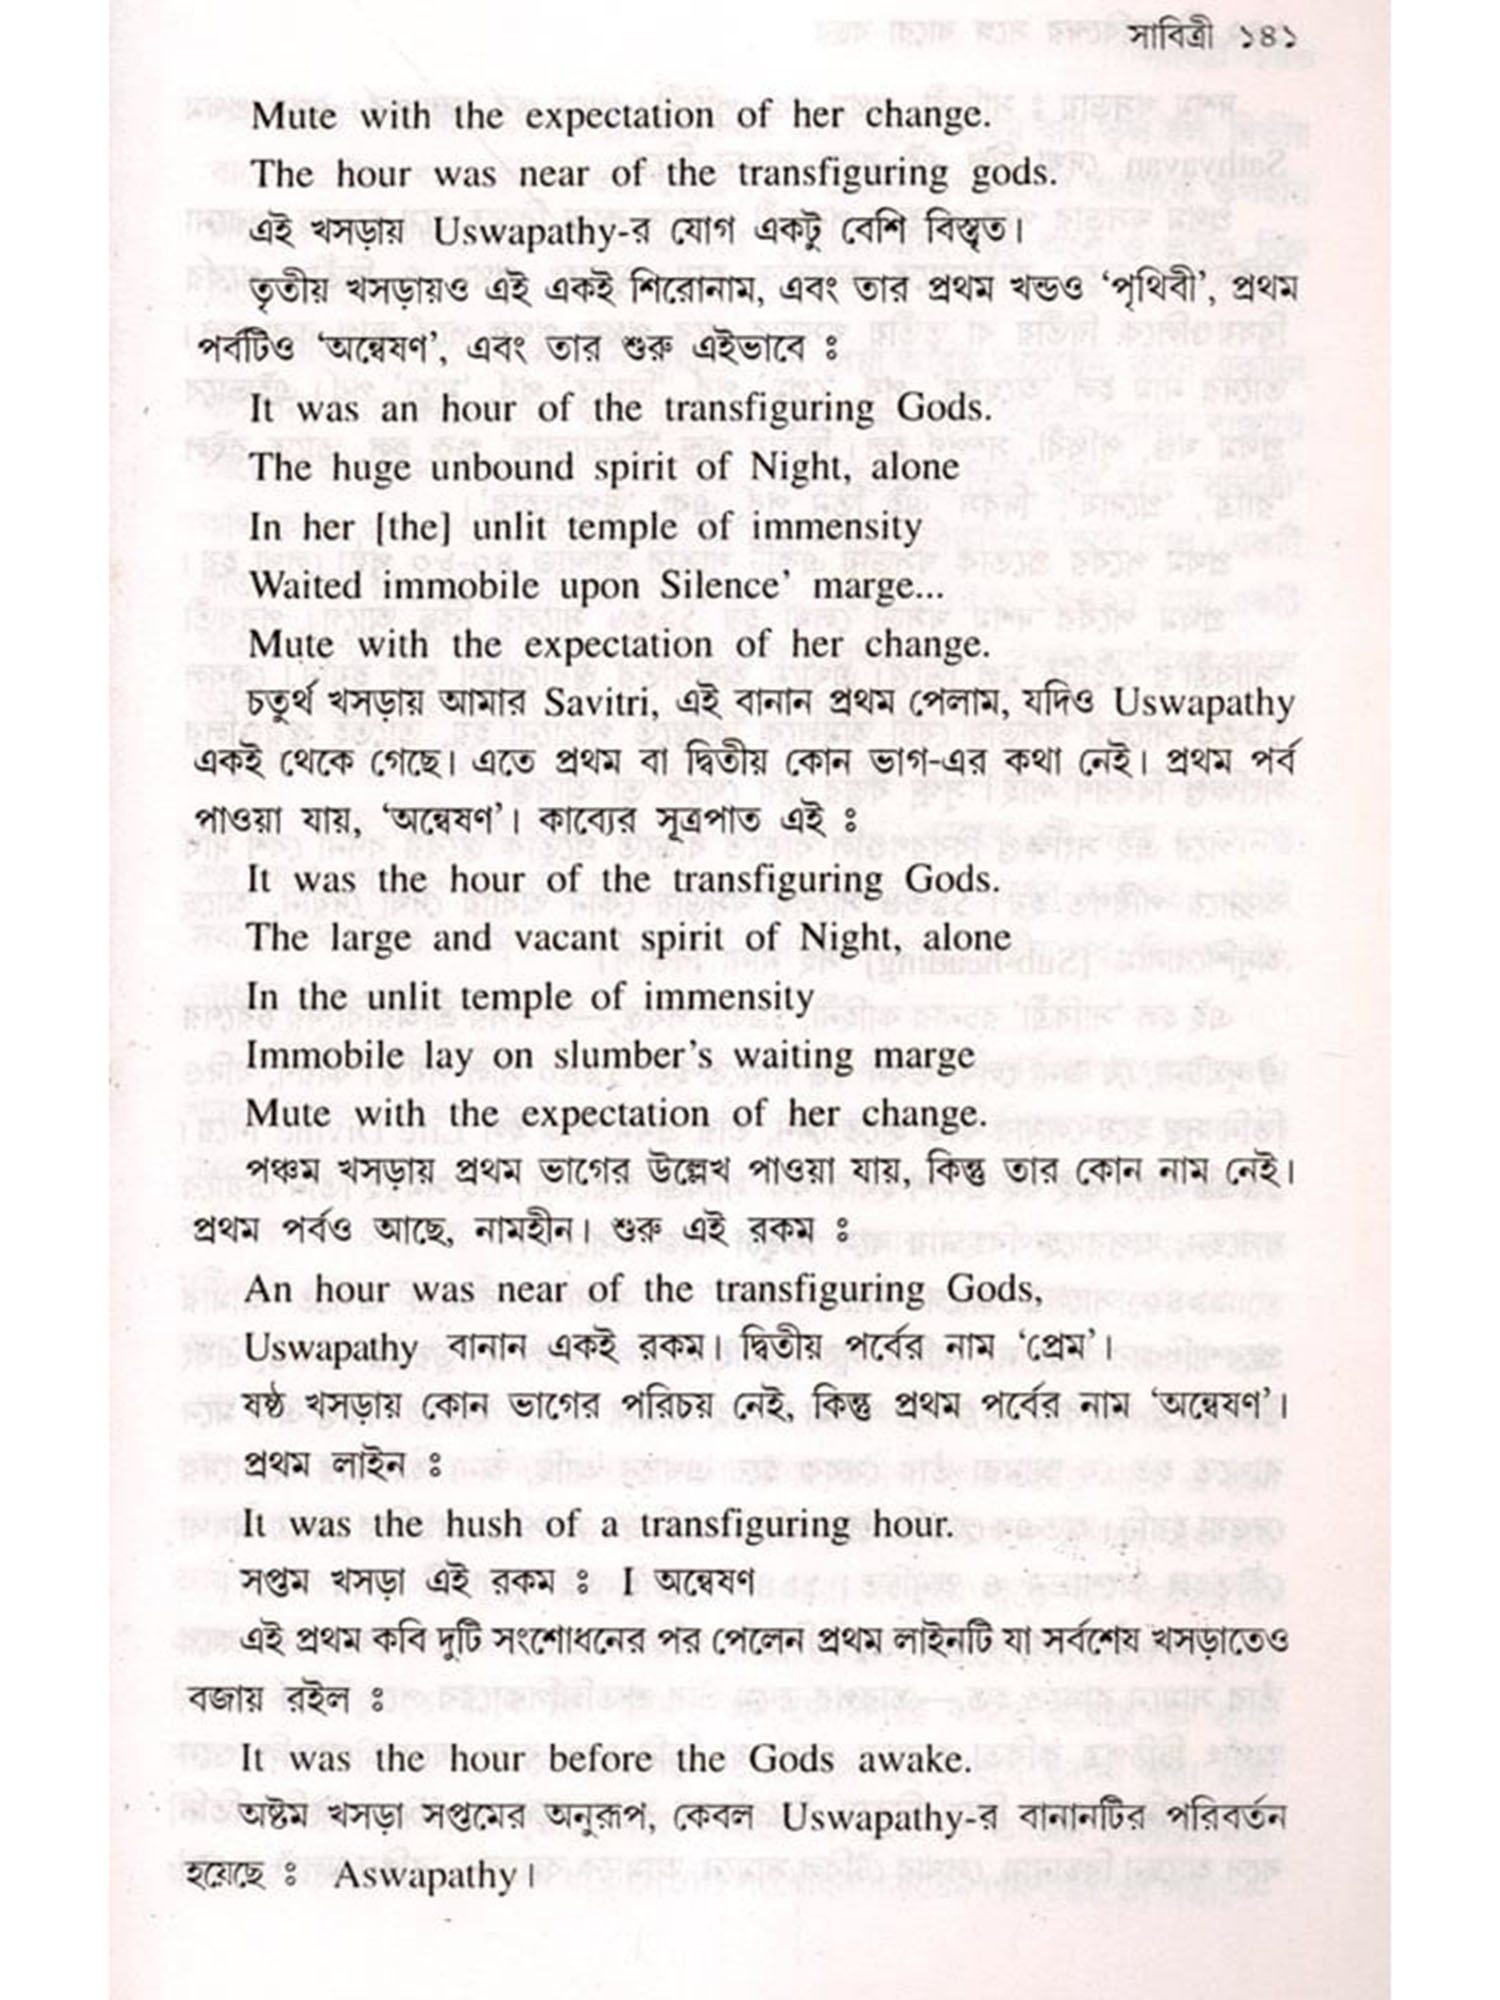 সাবিত্রী ১৪১
Mute with the expectation of her change.
The hour was near of the transfiguring gods.
এই খসড়ায় Uswapathy-র যোগ একটু বেশি বিস্তৃত।
তৃতীয় খসড়ায়ও এই একই শিরোনাম, এবং তার প্রথম খন্ডও ‘পৃথিবী’, প্রথম
পর্বটিও ‘অন্বেষণ’, এবং তার শুরু এইভাবে ঃ
It was an hour of the transfiguring Gods.
The huge unbound spirit of Night, alone
In her [the] unlit temple of immensity
Waited immobile upon Silence’ marge...
Mute with the expectation of her change.
চতুর্থ খসড়ায় আমার Savitri, এই বানান প্রথম পেলাম, যদিও Uswapathy
একই থেকে গেছে। এতে প্রথম বা দ্বিতীয় কোন ভাগ-এর কথা নেই। প্রথম পর্ব
পাওয়া যায়, ‘অন্বেষণ’। কাব্যের সূত্রপাত এই ঃ
It was the hour of the transfiguring Gods.
The large and vacant spirit of Night, alone
In the unlit temple of immensity
Immobile lay on slumber’s waiting marge
Mute with the expectation of her change.
পঞ্চম খসড়ায় প্রথম ভাগের উল্লেখ পাওয়া যায়, কিন্তু তার কোন নাম নেই।
প্রথম পর্বও আছে, নামহীন। শুরু এই রকম ঃ
An hour was near of the transfiguring Gods,
Uswapathy বানান একই রকম। দ্বিতীয় পর্বের নাম ‘প্রেম’।
ষষ্ঠ খসড়ায় কোন ভাগের পরিচয় নেই, কিন্তু প্রথম পর্বের নাম ‘অন্বেষণ’।
প্রথম লাইন ঃ
It was the hush of a transfiguring hour.
সপ্তম খসড়া এই রকম ঃ I অন্বেষণ
এই প্রথম কবি দুটি সংশোধনের পর পেলেন প্রথম লাইনটি যা সর্বশেষ খসড়াতেও
বজায় রইল ঃ
It was the hour before the Gods awake.
অষ্টম খসড়া সপ্তমের অনুরূপ, কেবল Uswapathy-র বানানটির পরিবর্তন
হয়েছে ঃ Aswapathy।